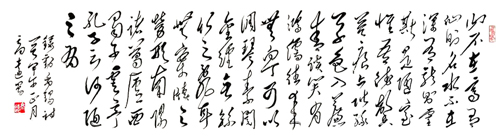 山不在高有
仙则名水不在
深有龙则灵
斯是陋室
惟吾德馨
苔痕上阶绿
草色入帘
青谈笑有
鸿儒往来
无白丁可以
调琴素阅
金经无丝
无案牍之
劳形南阳
诸葛庐西
蜀子云亭
孔子云何陋
之有